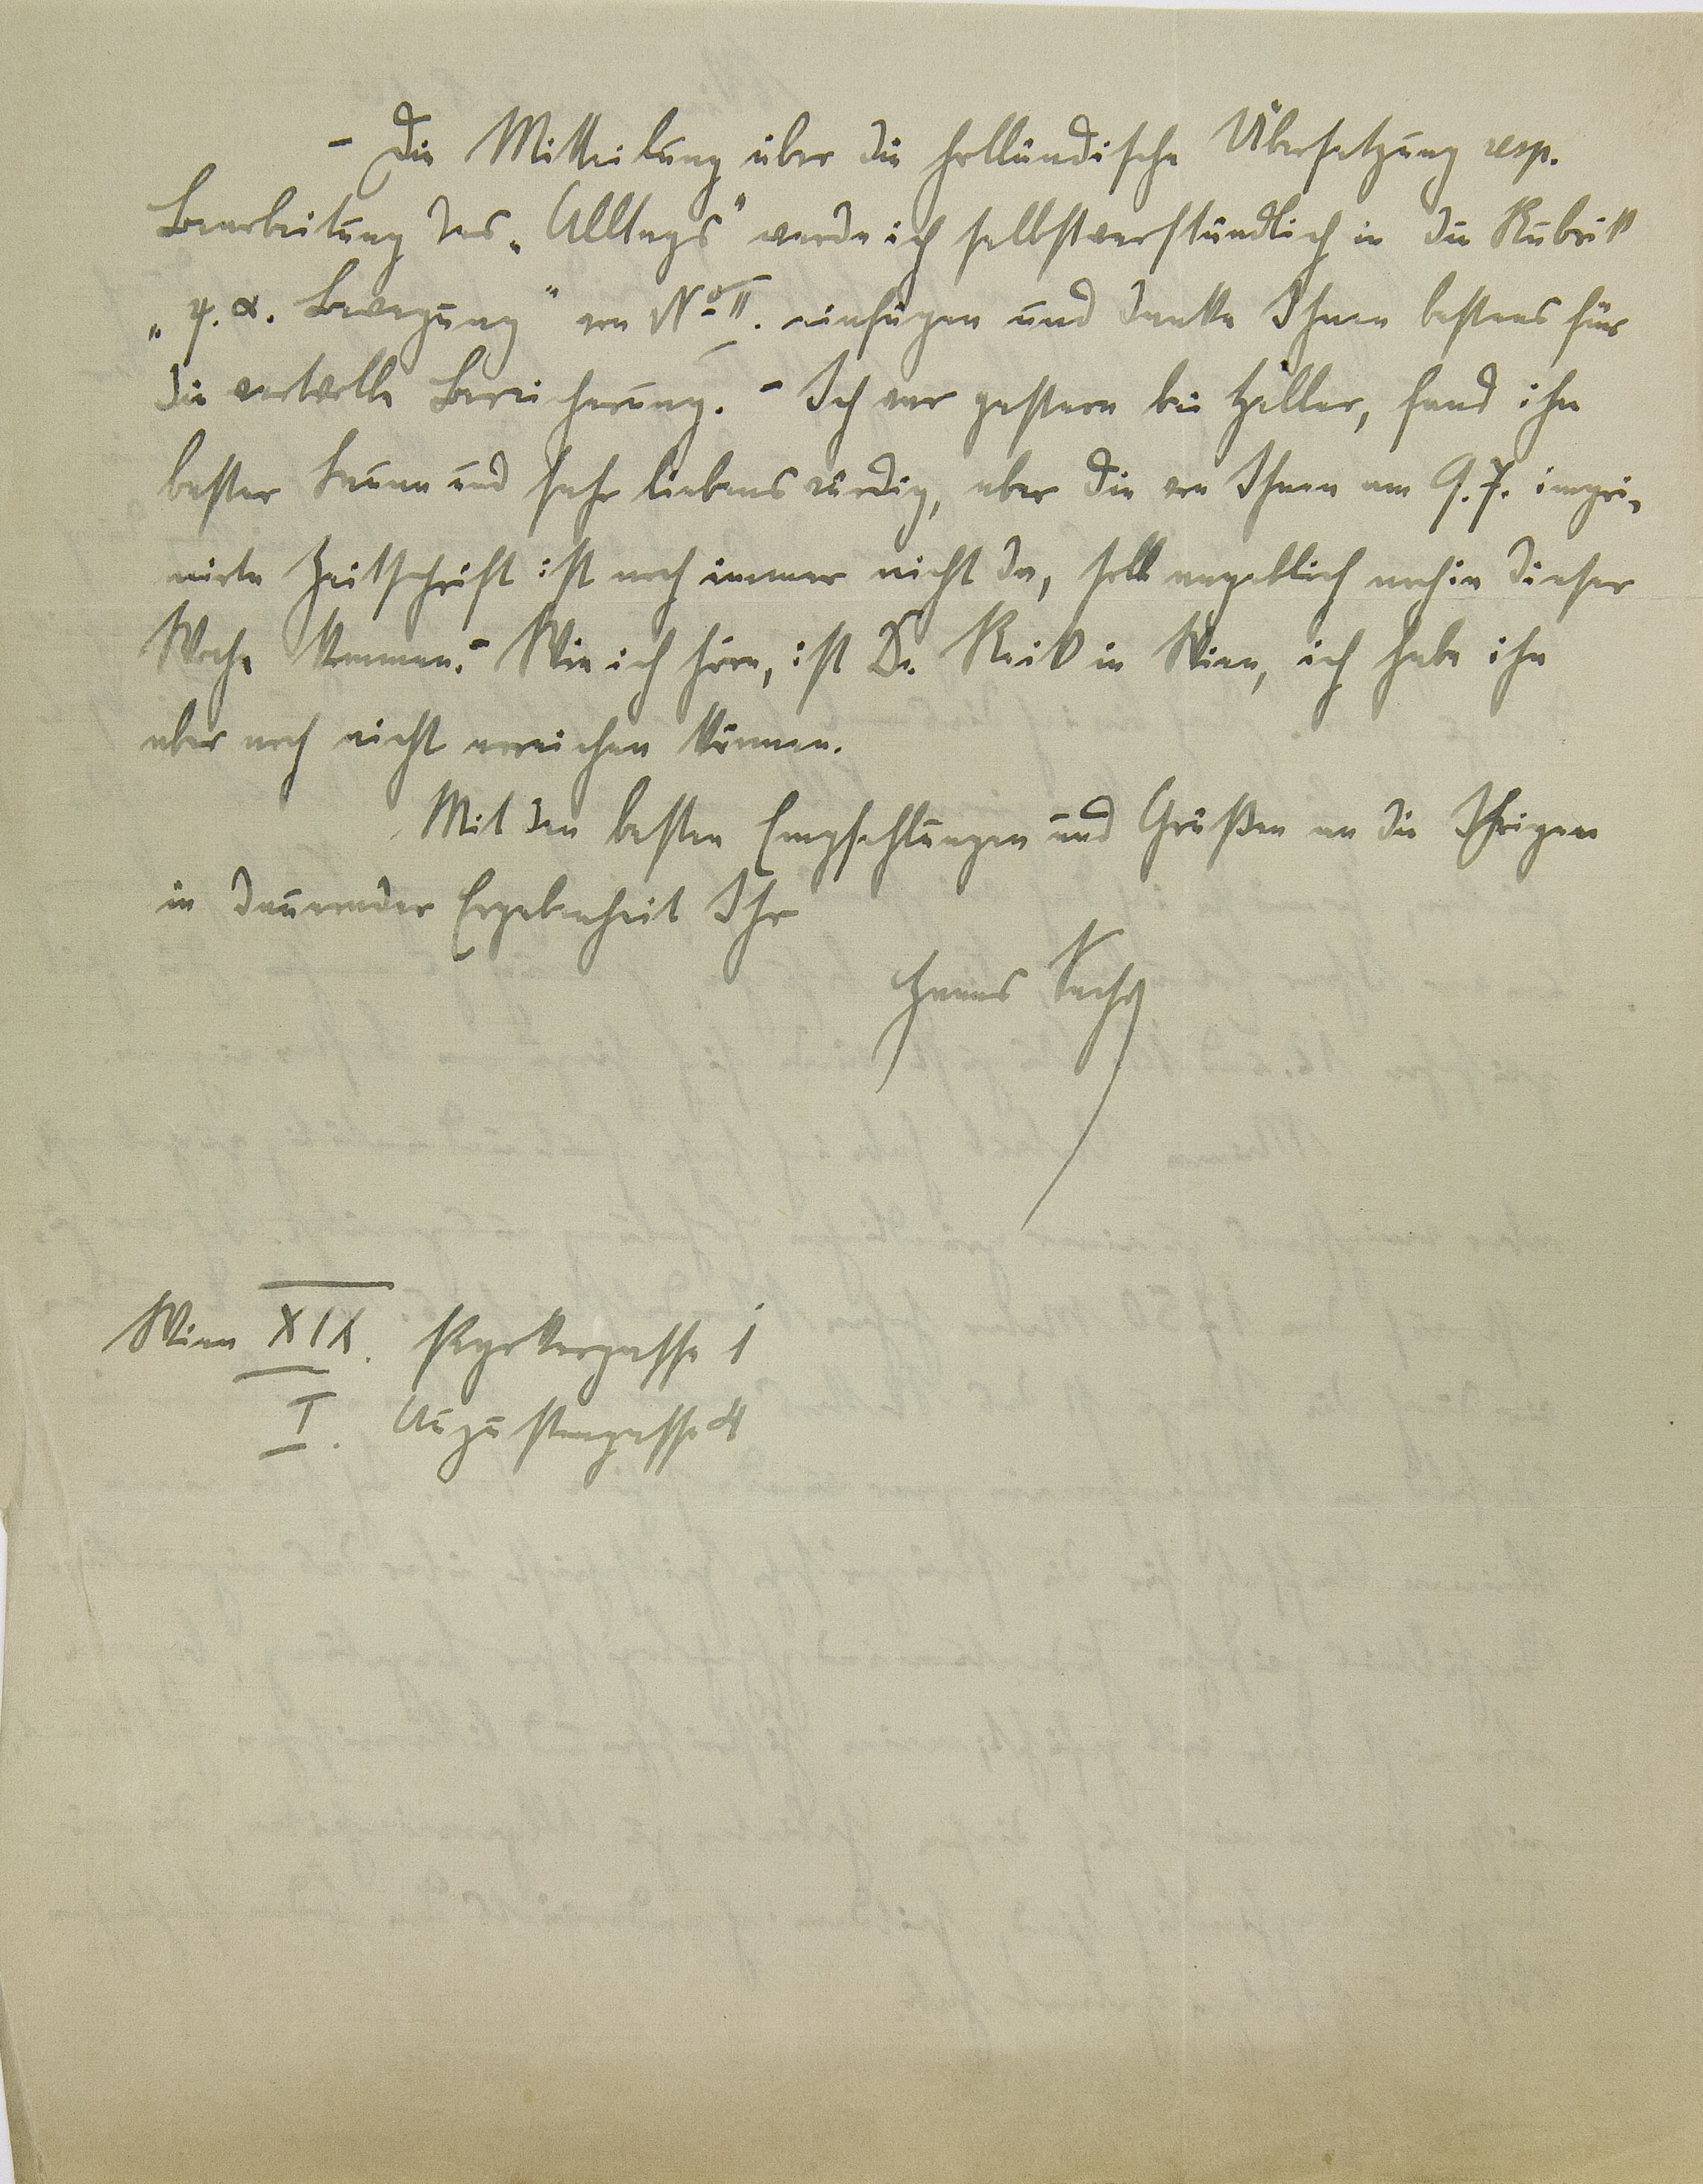 – Die Mitteilung über die holländische Übersetzung resp.
Bearbeitung des „Alltags" werde ich selbstverständlich in die Rubrik
„ψ.α. Bewegung" von No II. einfügen und danke Ihnen bestens für
die wertvolle Bereicherung. – Ich war gestern bei Heller, fand ihn
bester Laune und sehr liebenswürdig, aber die von Ihnen am 9.7. impri-
mirte Zeitschrift ist noch immer nicht da, soll angeblich noch in dieser
Woche kommen. – Wie ich höre, ist Dr. Reik in Wien, ich habe ihn
aber noch nicht erreichen können.
Mit den besten Empfehlungen und Grüßen an die Ihrigen
in dauernder Ergebenheit Ihr
Hanns Sachs
Wien XIX. Pyrkergasse 1
I. Augustengasse 4